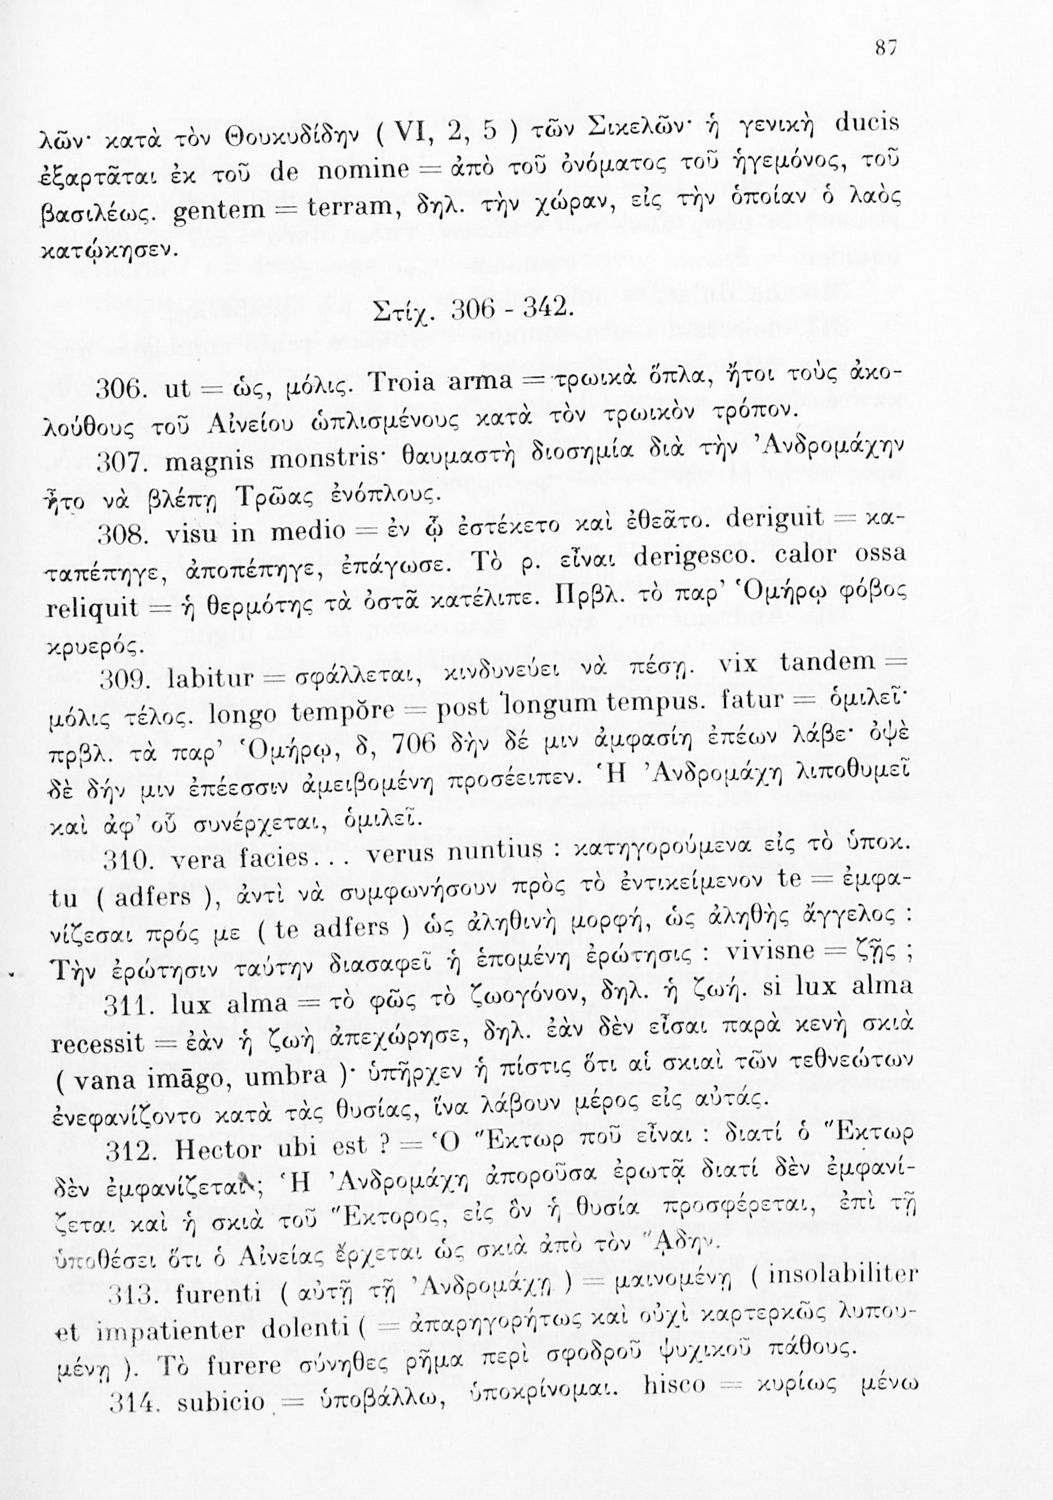 87
λῶν· κατὰ τὸν Θουκυδίδην ( VI, 2, 5 ) τῶν Σικελῶν· ἡ γενικὴ ducis
ἐξαρτᾶται ἐκ τοῦ de nomine = ἀπὸ τοῦ ὀνόματος τοῦ ἡγεμόνος, τοῦ
βασιλέως. gentem = terram, δηλ. τὴν χώραν, εἰς τὴν ὁποίαν ὁ λαὸς
κατῴκησεν.
Στίχ. 306 - 342.
306. ut = ὡς, μόλις. Troia arma = τρωικὰ ὅπλα, ἤτοι τοὺς ἀκο-
λούθους τοῦ Αἰνείου ὡπλισμένους κατὰ τὸν τρωικὸν τρόπον.
307. magnis monstris· θαυμαστὴ διοσημία διὰ τὴν Ἀνδρομάχην
ἦτο νὰ βλέπῃ Τρῶας ἐνόπλους.
308. visu in medio = ἐν ᾧ ἐστέκετο καὶ ἐθεᾶτο. deriguit = κα-
ταπέπηγε, ἀποπέπηγε, ἐπάγωσε. Τὸ ρ. εἶναι derigesco. calor ossa
reliquit = ἡ θερμότης τὰ ὀστᾶ κατέλιπε. Πρβλ. τὸ παρ’ Ὁμήρῳ φόβος
κρυερός.
309. labitur = σφάλλεται, κινδυνεύει νὰ πέσῃ. vix tandem =
μόλις τέλος. longo tempŏre = post longum tempus. fatur = ὁμιλεῖ·
πρβλ. τὰ παρ’ Ὁμήρῳ, δ, 706 δὴν δέ μιν ἀμφασίη ἐπέων λάβε· ὀψὲ
δὲ δήν μιν ἐπέεσσιν ἀμειβομένη προσέειπεν. Ἡ Ἀνδρομάχη λιποθυμεῖ
καὶ ἀφ’ οὗ συνέρχεται, ὁμιλεῖ.
310. vera facies... verus nuntius : κατηγορούμενα εἰς τὸ ὑποκ.
tu ( adfers ), ἀντὶ νὰ συμφωνήσουν πρὸς τὸ ἐντικείμενον te = ἐμφα-
νίζεσαι πρός με ( te adfers ) ὡς ἀληθινὴ μορφή, ὡς ἀληθὴς ἄγγελος :
Τὴν ἐρώτησιν ταύτην διασαφεῖ ἡ ἑπομένη ἐρώτησις : vivisne = ζῇς ;
311. lux alma = τὸ φῶς τὸ ζωογόνον, δηλ. ἡ ζωή. si lux alma
recessit = ἐὰν ἡ ζωὴ ἀπεχώρησε, δηλ. ἐὰν δὲν εἶσαι παρὰ κενὴ σκιὰ
( vana imāgo, umbra )· ὑπῆρχεν ἡ πίστις ὅτι αἱ σκιαὶ τῶν τεθνεώτων
ἐνεφανίζοντο κατὰ τὰς θυσίας, ἵνα λάβουν μέρος εἰς αὐτάς.
312. Hector ubi est ? = Ὁ Ἕκτωρ ποῦ εἶναι : διατί ὁ Ἕκτωρ
δὲν ἐμφανίζεται; Ἡ Ἀνδρομάχη ἀποροῦσα ἐρωτᾷ διατί δὲν ἐμφανί-
ζεται καὶ ἡ σκιὰ τοῦ Ἕκτορος, εἰς ὃν ἡ θυσία προσφέρεται, ἐπὶ τῇ
ὑποθέσει ὅτι ὁ Αἰνείας ἔρχεται ὡς σκιὰ ἀπὸ τὸν Ἅδην.
313. furenti ( αὐτῇ τῇ Ἀνδρομάχῃ ) = μαινομένῃ ( insolabiliter
et impatienter dolenti ( = ἀπαρηγορήτως καὶ οὐχὶ καρτερκῶς λυπου-
μένῃ ). Τὸ furere σύνηθες ρῆμα περὶ σφοδροῦ ψυχικοῦ πάθους.
314. subicio = ὑποβάλλω, ὑποκρίνομαι. hisco = κυρίως μένω